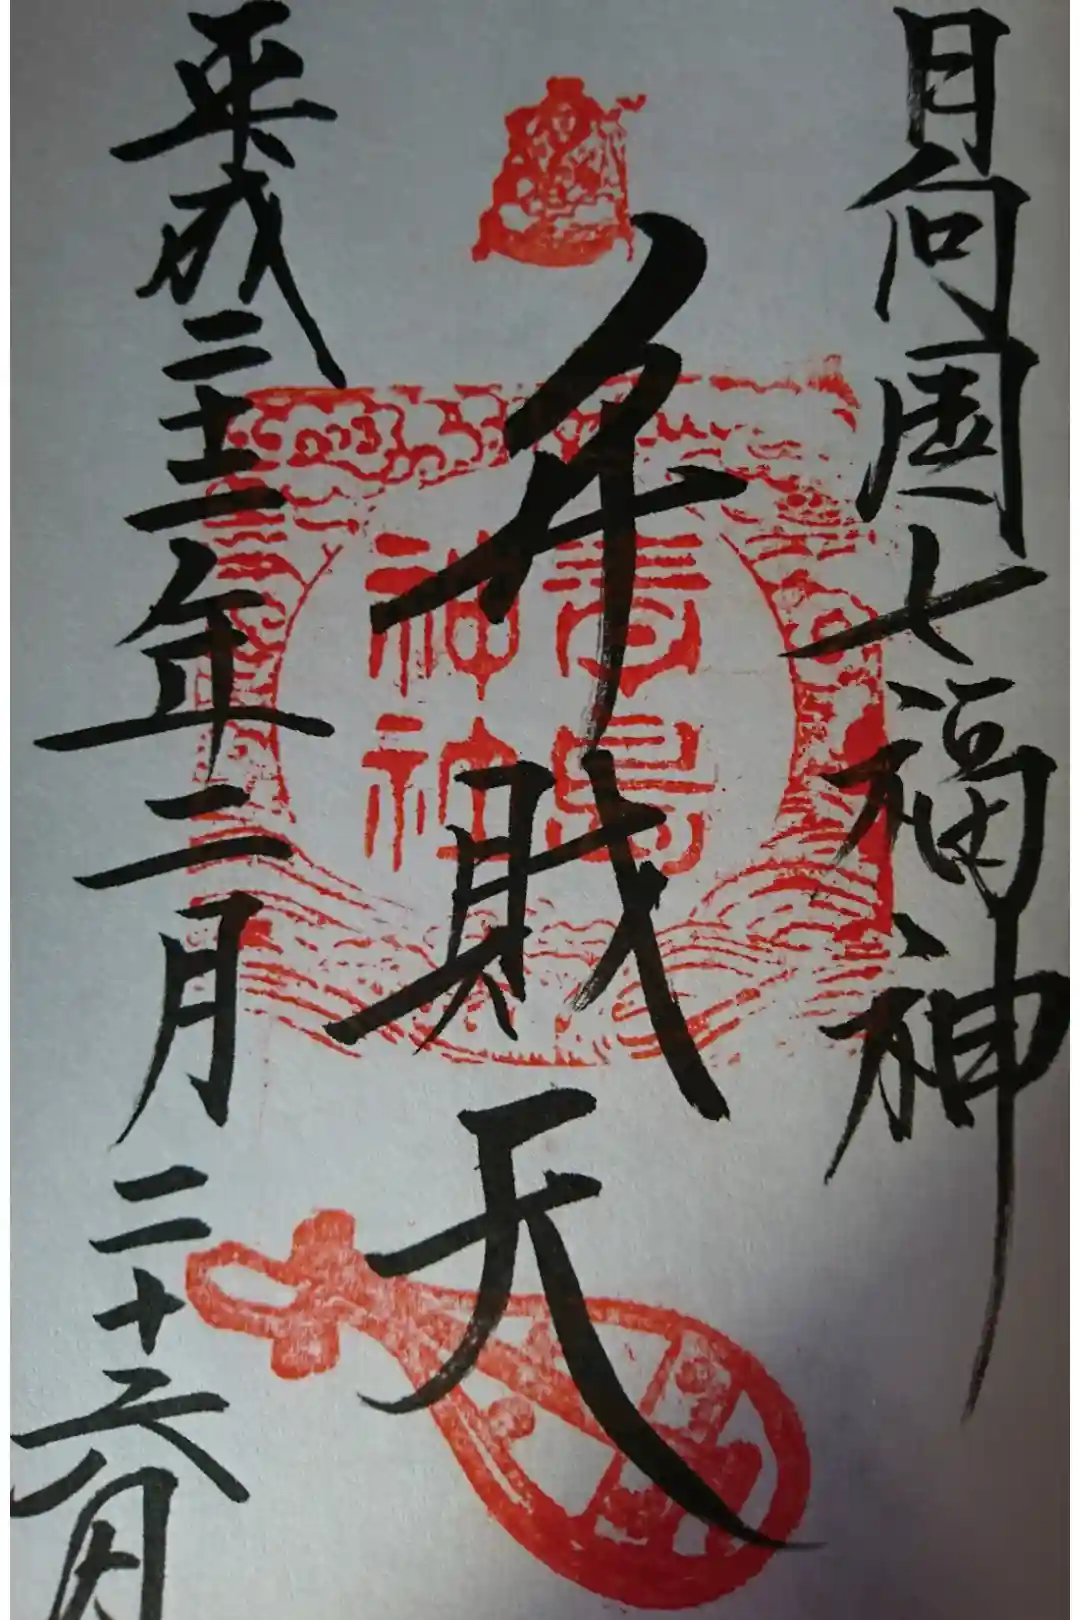 日向国七福神
弁財天
青島
神社
平成二十二年二月二十六日